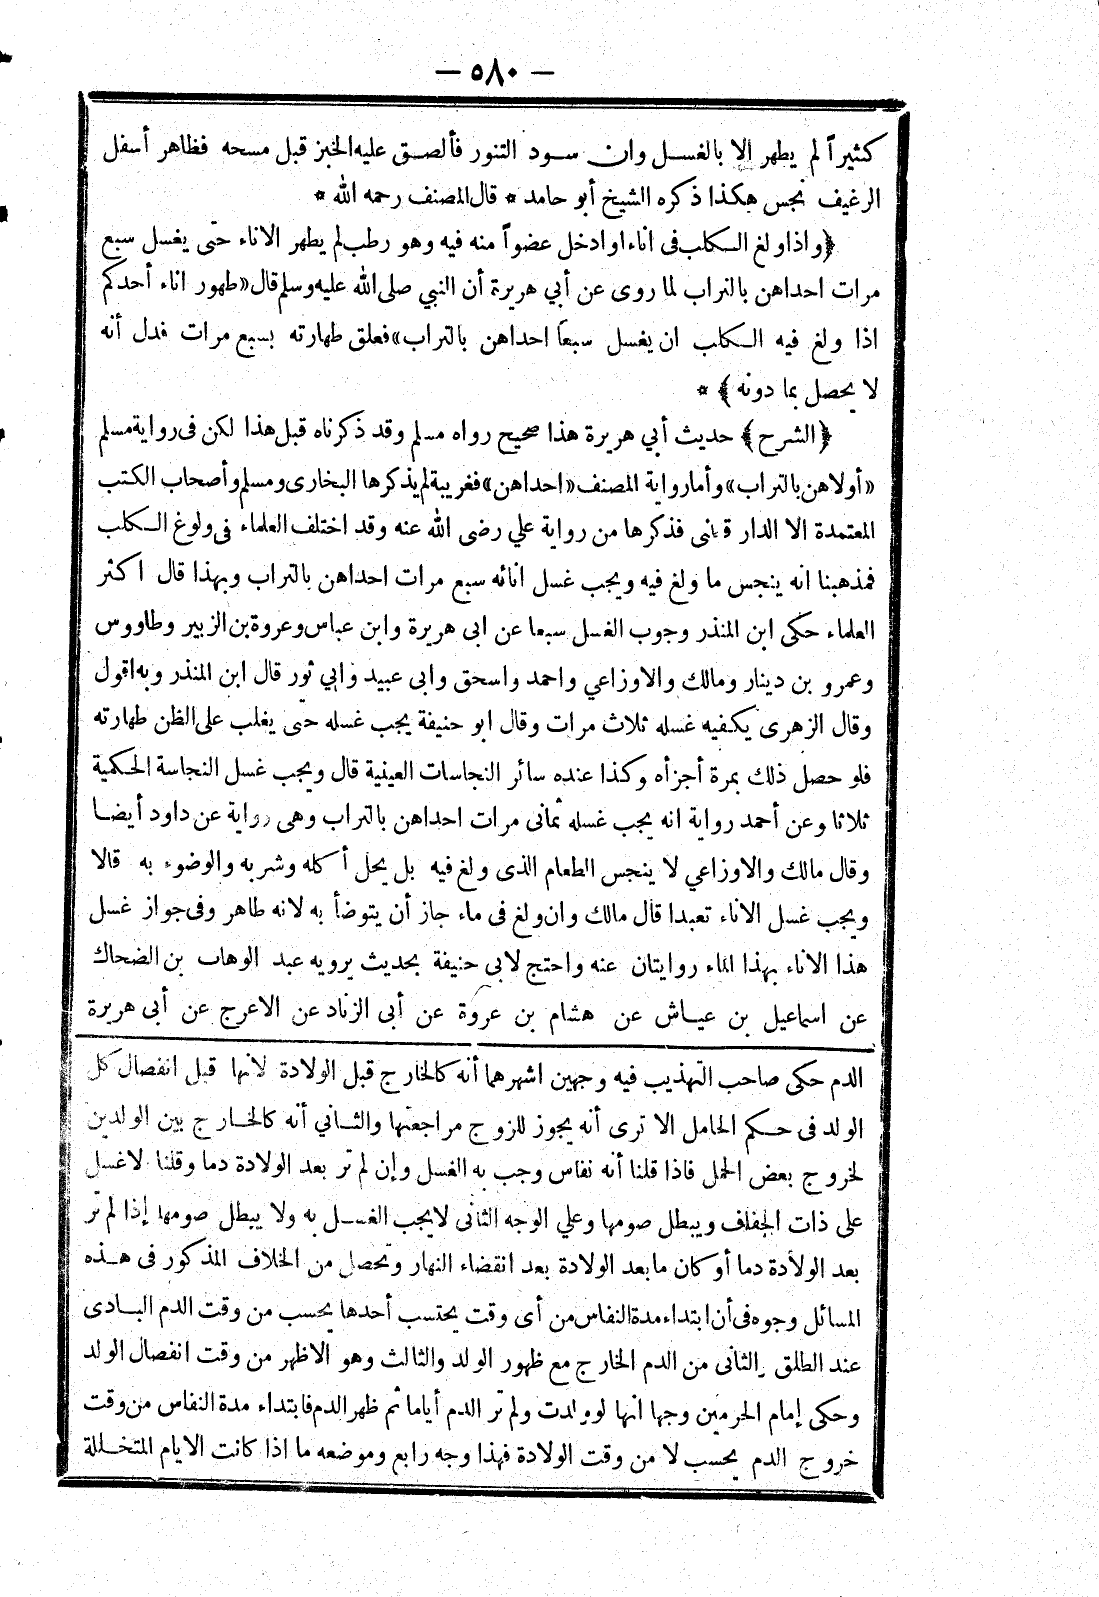 — ٥٨٠ —
كثيراً لم يطهر إلا بالغسل وان سود التنور فألصق عليه الخبز قبل مسحه فظاهر أسفل
الرغيف نجس هكذا ذكره الشيخ أبو حامد * قال المصنف رحمه الله *
﴿واذا ولغ الكلب فى اناء او ادخل عضواً منه فيه وهو رطب لم يطهر الاناء حتى يغسل سبع
مرات احداهن بالتراب لما روى عن أبي هريرة أن النبي صلى الله عليه وسلم قال «طهور اناء أحدكم
اذا ولغ فيه الكلب ان يغسل سبعاً احداهن بالتراب» فعلق طهارته بسبع مرات فدل أنه
لا يحصل بما دونه﴾ *
﴿الشرح﴾ حديث أبي هريرة هذا صحيح رواه مسلم وقد ذكرناه قبل هذا لكن فى رواية مسلم
«أولاهن بالتراب» وأما رواية المصنف «احداهن» فغريبة لم يذكرها البخارى ومسلم وأصحاب الكتب
المعتمدة الا الدار قطنى فذكرها من رواية علي رضى الله عنه وقد اختلف العلماء فى ولوغ الكلب
فمذهبنا انه ينجس ما ولغ فيه ويجب غسل انائه سبع مرات احداهن بالتراب وبهذا قال اكثر
العلماء حكى ابن المنذر وجوب الغسل سبعا عن ابى هريرة وابن عباس وعروة بن الزبير وطاووس
وعمرو بن دينار ومالك والاوزاعي واحمد واسحق وابى عبيد وابي ثور قال ابن المنذر وبه اقول
وقال الزهرى يكفيه غسله ثلاث مرات وقال ابو حنيفة يجب غسله حتى يغلب على الظن طهارته
فلو حصل ذلك بمرة أجزأه وكذا عنده سائر النجاسات العينية قال ويجب غسل النجاسة الحكمية
ثلاثا وعن أحمد رواية انه يجب غسله ثمانى مرات احداهن بالتراب وهى رواية عن داود أيضا
وقال مالك والاوزاعي لا ينجس الطعام الذى ولغ فيه بل يحل أكله وشربه والوضوء به قالا
ويجب غسل الاناء تعبدا قال مالك وان ولغ فى ماء جاز أن يتوضأ به لانه طاهر وفى جواز غسل
هذا الاناء بهذا الماء روايتان عنه واحتج لابي حنيفة بحديث يرويه عبد الوهاب بن الضحاك
عن اسماعيل بن عياش عن هشام بن عروة عن أبى الزناد عن الاعرج عن أبى هريرة
الدم حكى صاحب التهذيب فيه وجهين اشهرهما أنه كالخارج قبل الولادة لانها قبل انفصال كل
الولد فى حكم الحامل الا ترى أنه يجوز للزوج مراجعتها والثاني أنه كالخارج بين الولدين
لخروج بعض الحمل فاذا قلنا أنه نفاس وجب به الغسل وإن لم تر بعد الولادة دما وقلنا لا غسل
على ذات الجفاف ويبطل صومها وعلي الوجه الثانى لا يجب الغسل به ولا يبطل صومها إذا لم تر
بعد الولادة دما أو كان ما بعد الولادة بعد انقضاء النهار وتحصل من الخلاف المذكور فى هذه
المسائل وجوه فى أن ابتداء مدة النفاس من أى وقت يحتسب أحدها يحسب من وقت الدم البادى
عند الطلق والثانى من الدم الخارج مع ظهور الولد والثالث وهو الاظهر من وقت انفصال الولد
وحكى إمام الحرمين وجها انها لو ولدت ولم تر الدم أياما ثم ظهر الدم فابتداء مدة النفاس من وقت
خروج الدم يحسب لا من وقت الولادة فهذا وجه رابع وموضعه ما اذا كانت الايام المتخللة